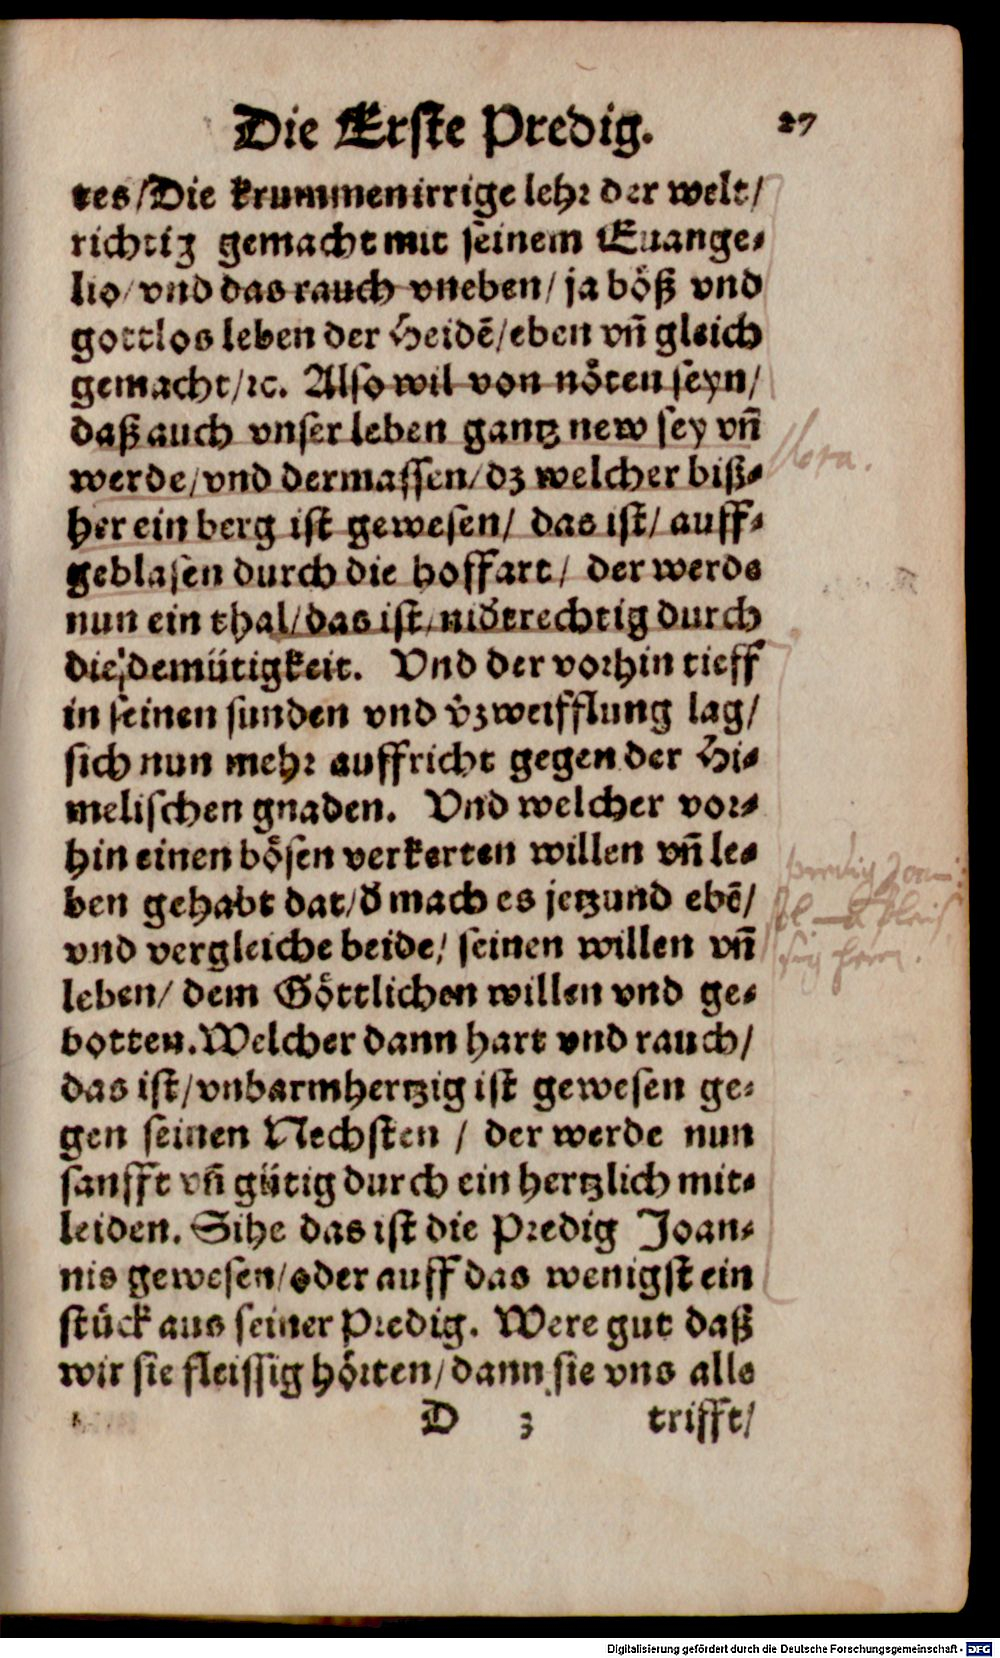 Die Erste Predig. 27
tes/Die krummen irrige lehr der welt/
richtig gemacht mit seinem Euange-
lio/vnd das rauch vneben/ja böß vnd
gottlos leben der Heidē/eben vñ gleich
gemacht/ꝛc. Also wil von nöten seyn/
daß auch vnser leben gantz new sey vñ
werde/vnd dermassen/dz welcher biß-
her ein berg ist gewesen/ das ist/ auff-
geblasen durch die hoffart/ der werde
nun ein thal/das ist/nidtrechtig durch
die demütigkeit. Vnd der vorhin tieff
in seinen sunden vnd v̄zweifflung lag/
sich nun mehr auffricht gegen der Hi-
melischen gnaden. Vnd welcher vor-
hin einen bösen verkerten willen vñ le-
ben gehabt dat/d̄ mach es jetzund ebē/
vnd vergleiche beide/ seinen willen vñ
leben/ dem Göttlichen willen vnd ge-
botten. Welcher dann hart vnd rauch/
das ist/vnbarmhertzig ist gewesen ge-
gen seinen Nechsten / der werde nun
sanfft vñ gütig durch ein hertzlich mit-
leiden. Sihe das ist die Predig Joan-
nis gewesen/oder auff das wenigst ein
stück aus seiner Predig. Were gut daß
wir sie fleissig hörten/dann sie vns alle
D 3 trifft/
Digitalisierung gefördert durch die Deutsche Forschungsgemeinschaft - DFG